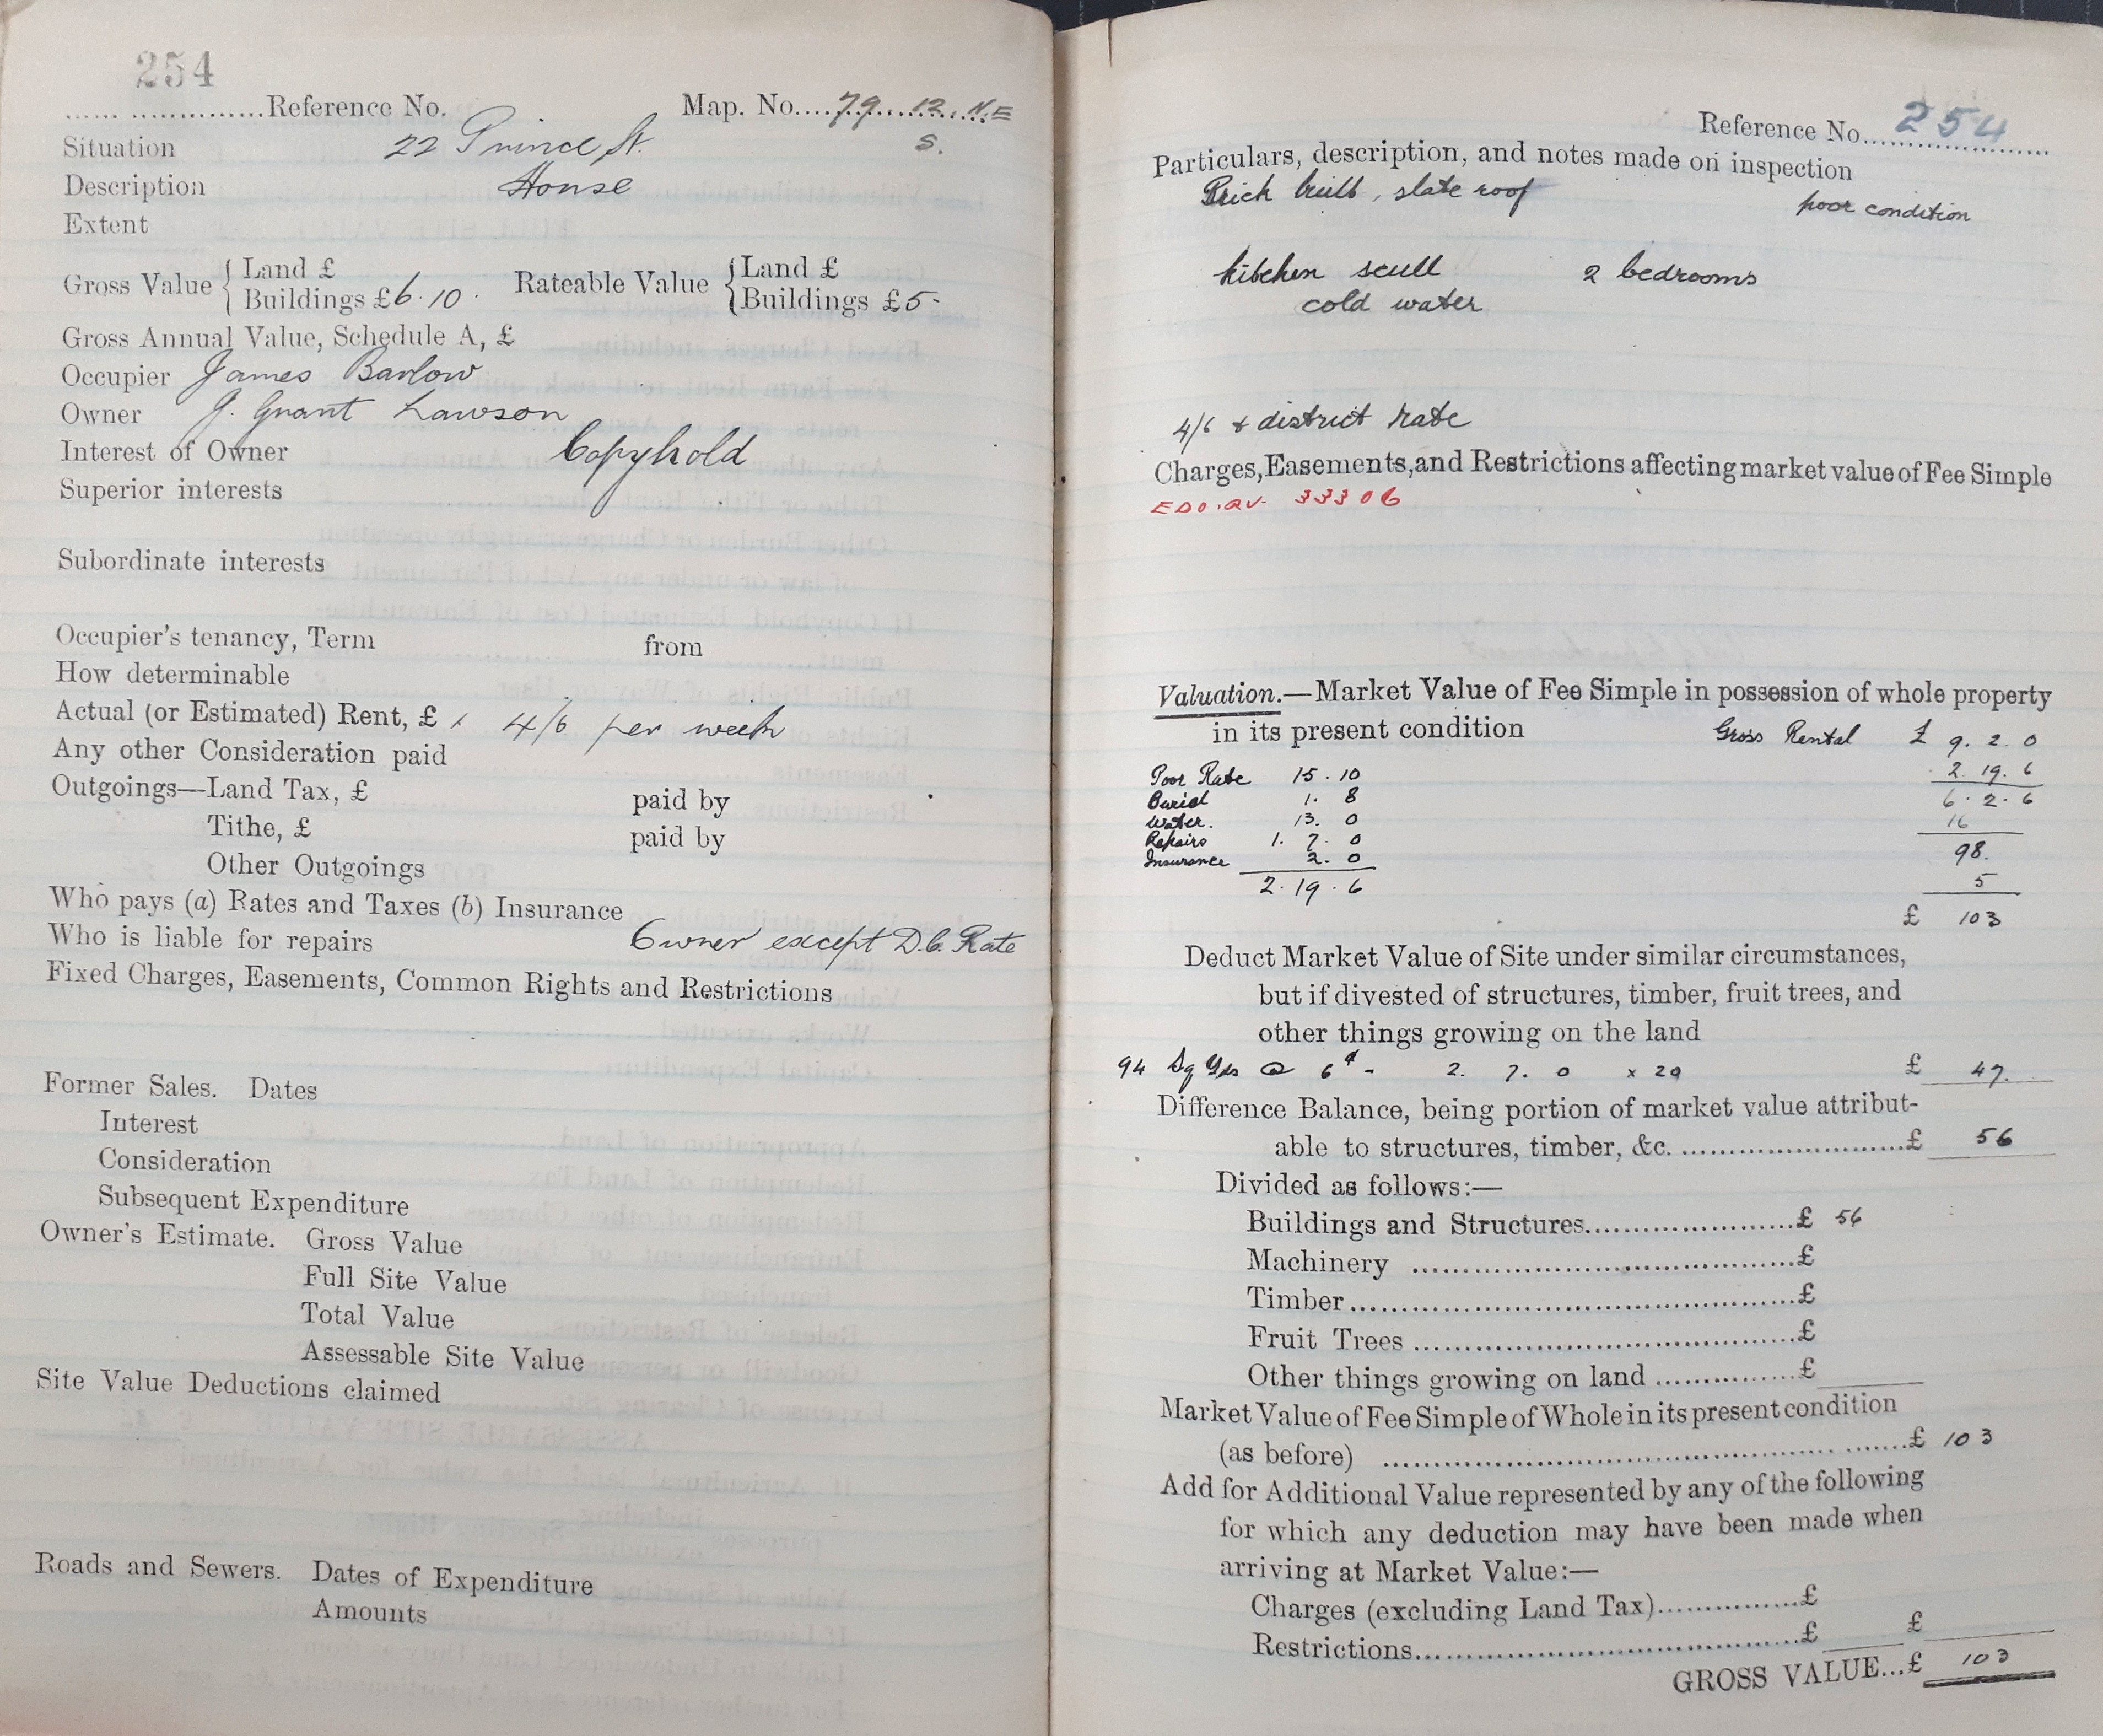 254
...... ...............Reference No. Map. No....79...12. N.E
Situation 22 Prince St. S.
Description House
Extent
Gross Value { Land £ Rateable Value { Land £
Buildings £6.10. Buildings £5-
Gross Annual Value, Schedule A, £
Occupier James Barlow
Owner J. Grant Lawson
Interest of Owner Copyhold
Superior interests
Subordinate interests
Occupier's tenancy, Term from
How determinable
Actual (or Estimated) Rent, £ 4/6 per week
Any other Consideration paid
Outgoings—Land Tax, £ paid by
Tithe, £ paid by
Other Outgoings
Who pays (a) Rates and Taxes (b) Insurance
Who is liable for repairs Owner except D.C. Rate
Fixed Charges, Easements, Common Rights and Restrictions
Former Sales. Dates
Interest
Consideration
Subsequent Expenditure
Owner's Estimate. Gross Value
Full Site Value
Total Value
Assessable Site Value
Site Value Deductions claimed
Roads and Sewers. Dates of Expenditure
Amounts
Reference No....254
Particulars, description, and notes made on inspection
Brick built, slate roof poor condition
kitchen scull 2 bedrooms
cold water
4/6 + district rate
Charges, Easements, and Restrictions affecting market value of Fee Simple
33306
Valuation.—Market Value of Fee Simple in possession of whole property
in its present condition Gross Rental £ 9. 2. 0
Poor Rate 15. 10 2. 19. 6
Burial 1. 8 6. 2. 6
Water. 13. 0 16
Repairs 1. 7. 0 98.
Insurance 2. 0 5
2. 19. 6 £ 103
Deduct Market Value of Site under similar circumstances,
but if divested of structures, timber, fruit trees, and
other things growing on the land
94 Sq Yds @ 6d - 2. 7. 0 x 20 £ 47.
Difference Balance, being portion of market value attribut-
able to structures, timber, &c. ........................£ 56
Divided as follows:—
Buildings and Structures.......................£ 56
Machinery ..........................................£
Timber................................................£
Fruit Trees ..........................................£
Other things growing on land ...............£
Market Value of Fee Simple of Whole in its present condition
(as before) ................................................£ 103
Add for Additional Value represented by any of the following
for which any deduction may have been made when
arriving at Market Value:—
Charges (excluding Land Tax)...............£
Restrictions..........................................£ £
GROSS VALUE...£ 103